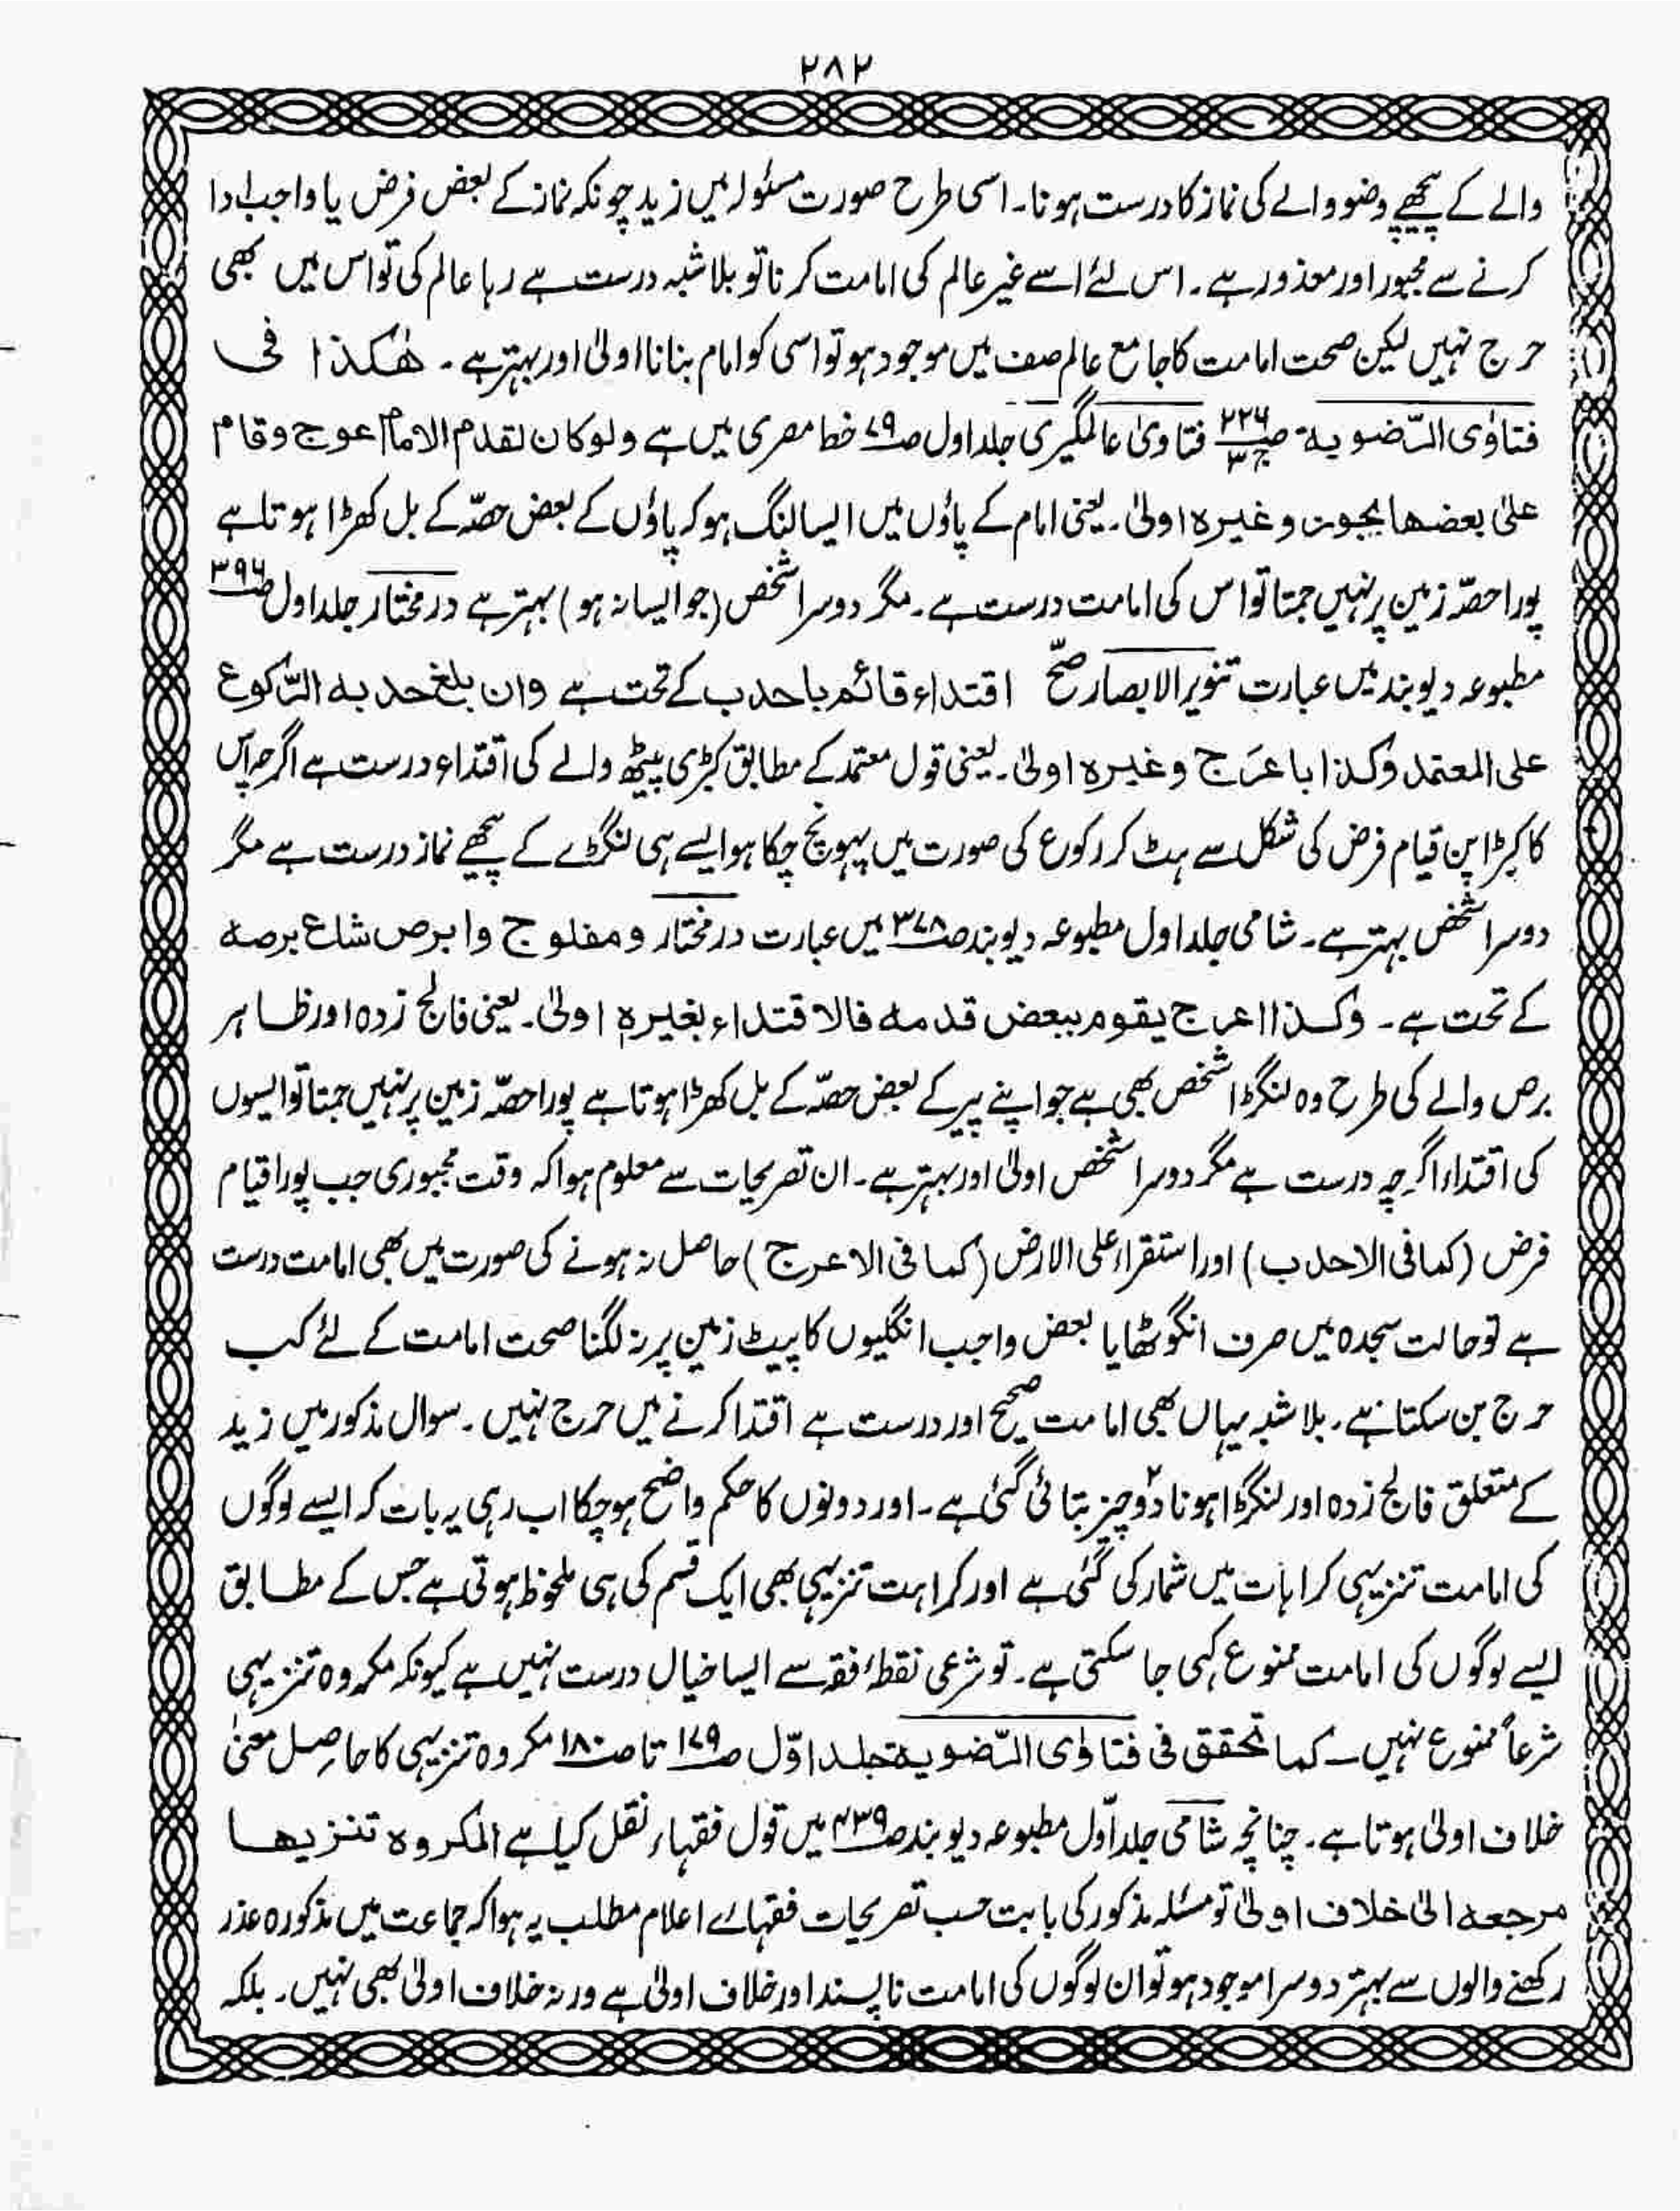 ۲۸۲
والے کے پیچھے وضو والے کی نماز کا درست ہونا۔ اسی طرح صورت مسئولہ میں زید چونکہ نماز کے بعض فرض یا واجب ادا
کرنے سے مجبور اور معذور ہے۔ اس لئے اسے غیر عالم کی امامت کرنا تو بلا شبہ درست ہے رہا عالم کی تو اس میں بھی
حرج نہیں لیکن صحت امامت کا جامع عالم صف میں موجود ہو تو اسی کو امام بنانا اولیٰ اور بہتر ہے۔ ھٰکذا فی
فتاوٰی الرّضویہ ص۲۲۶ ج۳ فتاویٰ عالمگیری جلد اول ص۷۹ خط مصری میں ہے ولو کان لقدم الامام عوج وقام
علیٰ بعضھا یجوز وغیرہ اولیٰ۔ یعنی امام کے پاؤں میں ایسا لنگ ہو کہ پاؤں کے بعض حصّہ کے بل کھڑا ہوتا ہے
پورا حصّہ زمین پر نہیں جمتا تو اس کی امامت درست ہے۔ مگر دوسرا شخص (جو ایسا نہ ہو) بہتر ہے درمختار جلد اول ص۳۹۶
مطبوعہ دیوبند میں عبارت تنویر الابصار صحّ اقتداء قائم باحدب کے تحت ہے وان بلغ حدبہ الرّکوع
علی المعتمد وکذا باعرَج وغیرہ اولیٰ۔ یعنی قول معتمد کے مطابق کبڑی پیٹھ والے کی اقتداء درست ہے اگرچہ اس
کا کبڑا پن قیام فرض کی شکل سے ہٹ کر رکوع کی صورت میں پہونچ چکا ہو ایسے ہی لنگڑے کے پیچھے نماز درست ہے مگر
دوسرا شخص بہتر ہے۔ شامی جلد اول مطبوعہ دیوبند ص۳۷۸ میں عبارت درمختار ومفلوج وابرص شاع برصہ
کے تحت ہے۔ وکذا اعرج یقوم ببعض قدمہ فالاقتداء بغیرہ اولیٰ۔ یعنی فالج زدہ اور ظاہر
برص والے کی طرح وہ لنگڑا شخص بھی ہے جو اپنے پیر کے بعض حصّہ کے بل کھڑا ہوتا ہے پورا حصّہ زمین پر نہیں جمتا تو ایسوں
کی اقتداء اگرچہ درست ہے مگر دوسرا شخص اولیٰ اور بہتر ہے۔ ان تصریحات سے معلوم ہوا کہ وقت مجبوری جب پورا قیام
فرض (کما فی الاحدب) اور استقراء علی الارض (کما فی الاعرج) حاصل نہ ہونے کی صورت میں بھی امامت درست
ہے تو حالت سجدہ میں صرف انگوٹھا یا بعض واجب انگلیوں کا پیٹ زمین پر نہ لگنا صحت امامت کے لئے کب
حرج بن سکتا ہے۔ بلا شبہ یہاں بھی امامت صحیح اور درست ہے اقتدا کرنے میں حرج نہیں۔ سوال مذکور میں زید
کے متعلق فالج زدہ اور لنگڑا ہونا دو۲ چیز بتائی گئی ہے۔ اور دونوں کا حکم واضح ہوچکا اب رہی یہ بات کہ ایسے لوگوں
کی امامت تنزیہی کراہات میں شمار کی گئی ہے اور کراہت تنزیہی بھی ایک قسم کی ہی ملحوظ ہوتی ہے جس کے مطابق
ایسے لوگوں کی امامت ممنوع کہی جا سکتی ہے۔ تو شرعی نقطۂ فقہ سے ایسا خیال درست نہیں ہے کیونکہ مکروہ تنزیہی
شرعاً ممنوع نہیں۔ کما تحقق فی فتاوٰی الرّضویہ جلد اوّل ص۱۷۹ تا ص۱۸۰ مکروہ تنزیہی کا حاصل معنیٰ
خلاف اولیٰ ہوتا ہے۔ چنانچہ شامی جلد اوّل مطبوعہ دیوبند ص۴۳۹ میں قول فقہاء نقل کیا ہے المکروہ تنزیھا
مرجعہ الیٰ خلاف اولیٰ تو مسئلہ مذکور کی بابت حسب تصریحات فقہائے اعلام مطلب یہ ہوا کہ جماعت میں مذکورہ عذر
رکھنے والوں سے بہتر دوسرا موجود ہو تو ان لوگوں کی امامت ناپسند اور خلاف اولیٰ ہے ورنہ خلاف اولیٰ بھی نہیں۔ بلکہ